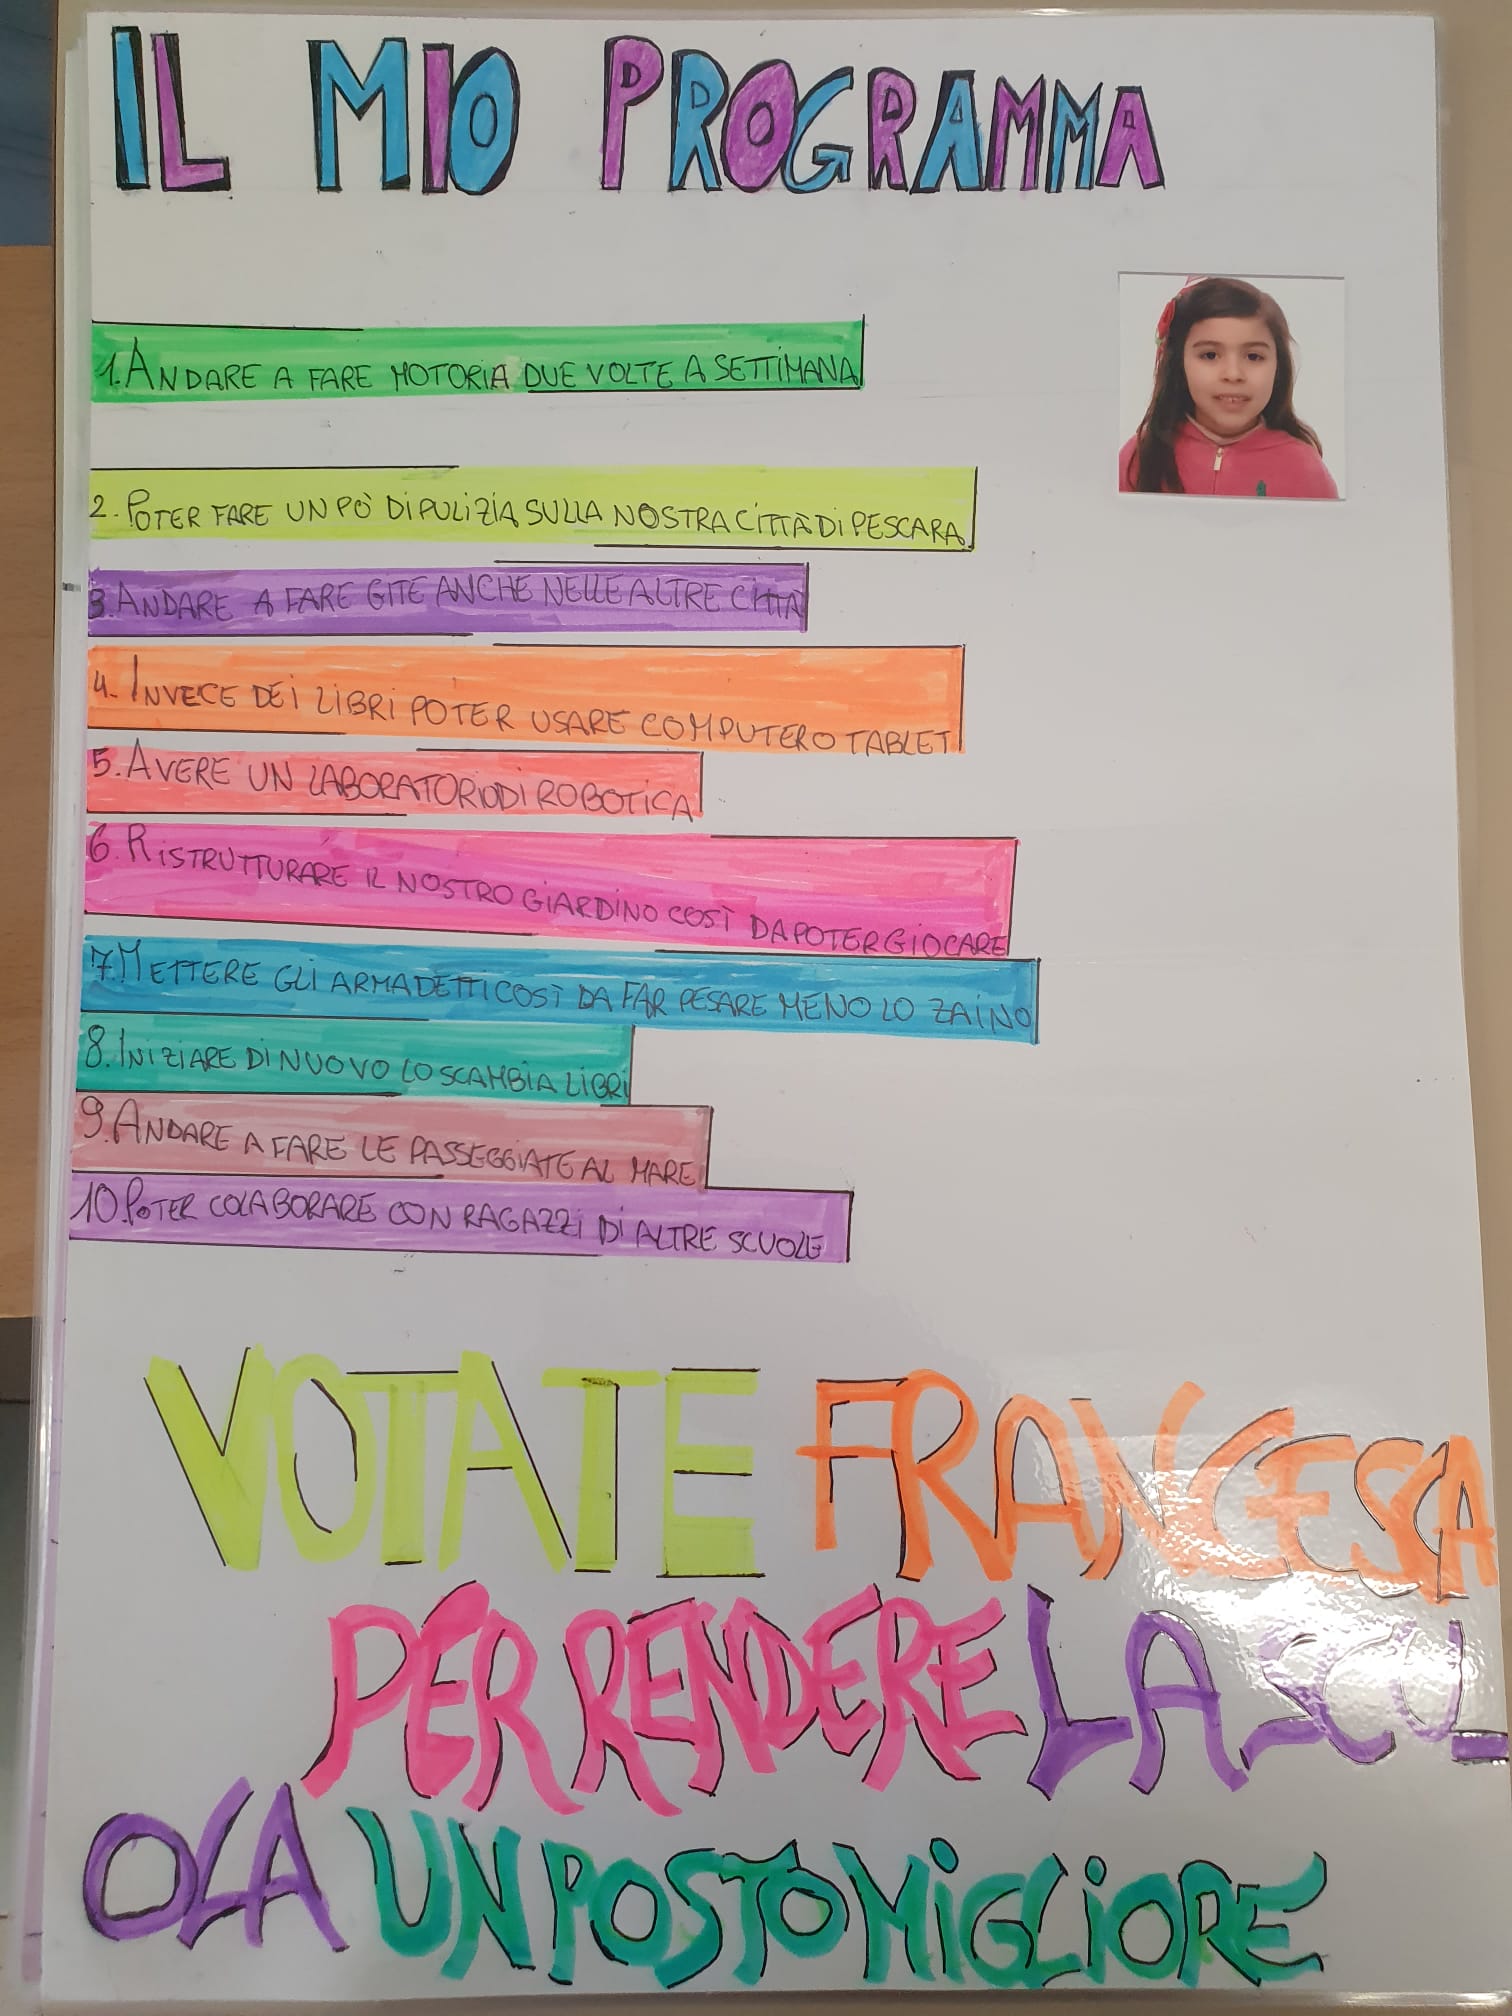 IL MIO PROGRAMMA
1. ANDARE A FARE MOTORIA DUE VOLTE A SETTIMANA
2. POTER FARE UN PÒ DI PULIZIA SULLA NOSTRA CITTÀ DI PESCARA
3. ANDARE A FARE GITE ANCHE NELLE ALTRE CITTÀ
4. INVECE DEI LIBRI POTER USARE COMPUTER O TABLET
5. AVERE UN LABORATORIO DI ROBOTICA
6. RISTRUTTURARE IL NOSTRO GIARDINO COSÌ DA POTER GIOCARE
7. METTERE GLI ARMADETTI COSÌ DA FAR PESARE MENO LO ZAINO
8. INIZIARE DI NUOVO LO SCAMBIA LIBRI
9. ANDARE A FARE LE PASSEGGIATE AL MARE
10. POTER COLABORARE CON RAGAZZI DI ALTRE SCUOLE
VOTATE FRANCESCA
PER RENDERE LA SCU_
OLA UN POSTO MIGLIORE